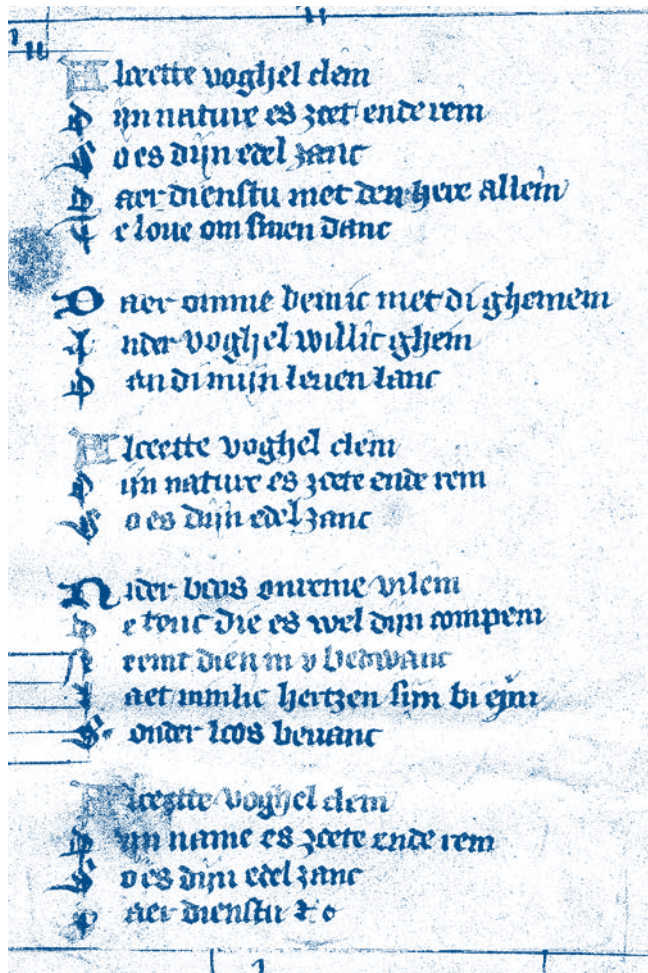 Aloeette voghel clein
Dijn nature es zoet ende rein
So es dijn edel zanc
Daer dienstu met den here allein
Te loue om sinen danc
Daer omme benic met di ghemein
Ander voghel willic ghein
Dan di mijn leuen lanc
Aloeette voghel clein
Dijn nature es zoete ende rein
So es dijn edel zanc
Nider boos onreine vilein
De die es wel dijn compein
dien in v bedwanc
Laet minlic hertzen sijn bi ein
Sonder loos beuanc
Aloeette voghel clein
Dijn name es zoete ende rein
So es dijn edel zanc
Daer dienstu &c